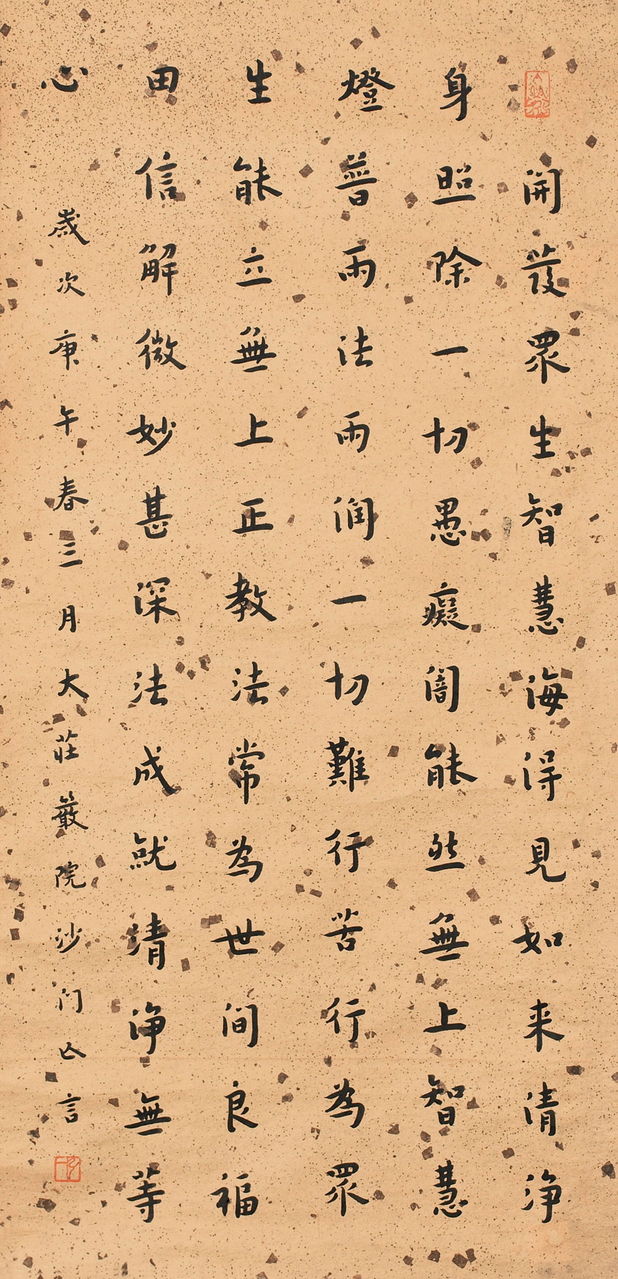 開發眾生智慧海得見如来清淨
身照除一切愚癡闇能然無上智慧
燈普雨法雨润一切難行苦行為眾
生能立無上正教法常為世间良福
田信解微妙甚深法成就清淨無等
心
歲次庚午春三月大莊嚴院沙门亡言